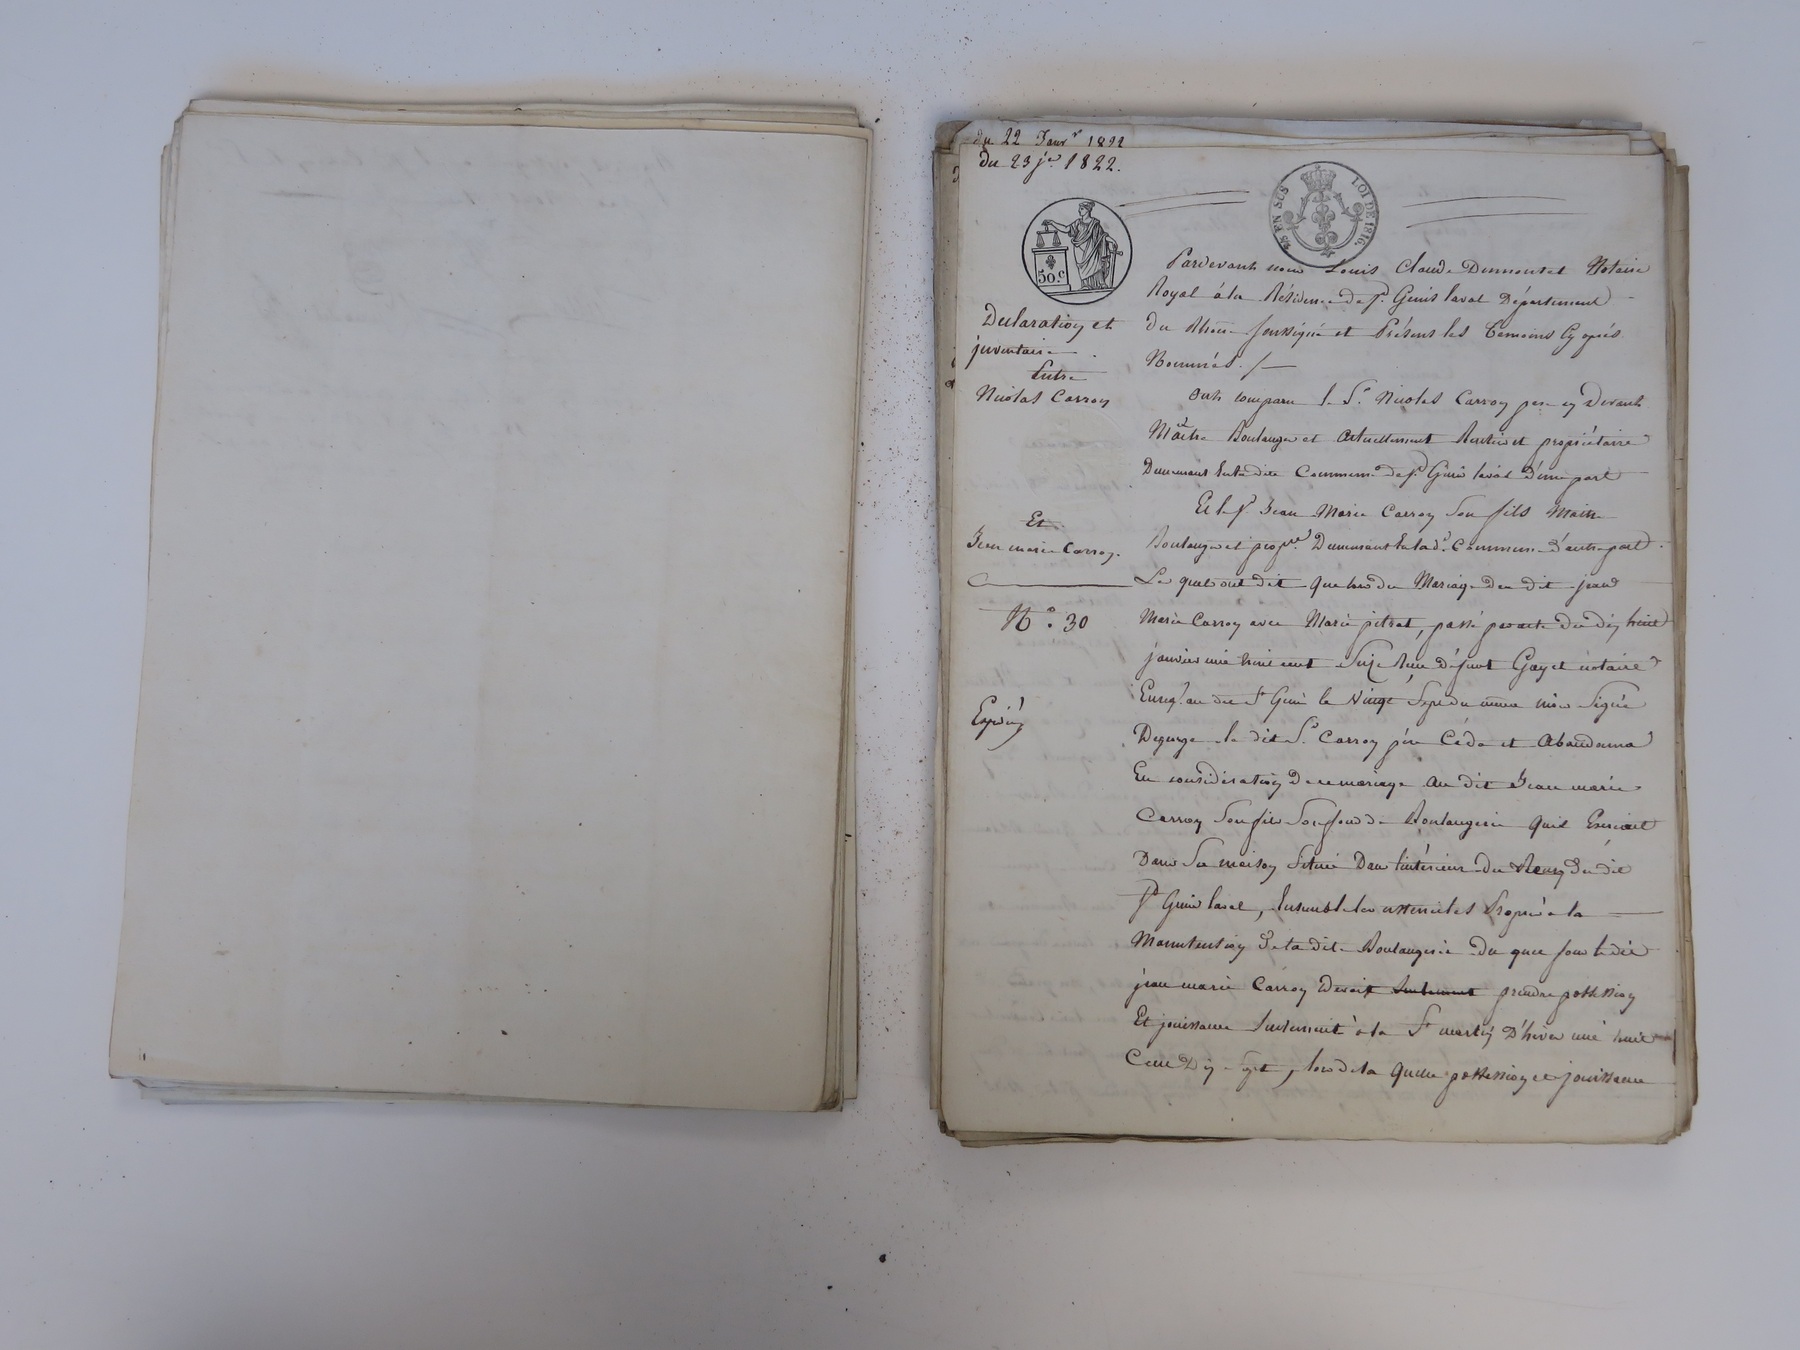 du 22 Janv.r 1822
du 23 j.er 1822.
25 EN SUS LOI DE 1816.
50.c
Declaration et
inventaire
Entre
Nicolas Carron
Et
Jean marie Carron.
N.o 30
Expédié
Pardevant nous Louis Claude Notaire
Royal à la Résidence de S.t Genis laval Département
du Rhône soussigné et Présens les Témoins Cy après
Nommés.
Ont comparu le S.r Nicolas Carron père cy Devant
Maître Boulanger et actuellement Rentier et propriétaire
Demeurant En la dite Commune de S.t Genis laval D'une part
Et le S.r Jean Marie Carron Son fils Maitre
Boulanger et prop.re Demeurant En la d.e Commune D'autre part
Les quels ont dit que lors du Mariage du dit jean
Marie Carron avec Marie pitrat, passé par acte du dix huit
janvier mil huit cent Seize Reçu Défunt Gayet notaire
Enreg.é au dit S.t Genis le Vingt Sept du même mois Signé
le dit S.r Carron père Céda et Abandonna
En considération De ce mariage au dit Jean marie
Carron Son fils Son fond de Boulangerie qu'il Exercait
Dans Sa maison Située Dans l'intérieur du Bourg du dit
S.t Genis laval, Ensemble les ustensiles Propres à la
Manutention De la dite Boulangerie du quel fond le dit
jean marie Carron Devait Seulement prendre possession
Et jouissance Seulement à la S.t martin D'hiver mil huit
Cent Dix Sept, lors de la quelle possession et jouissance